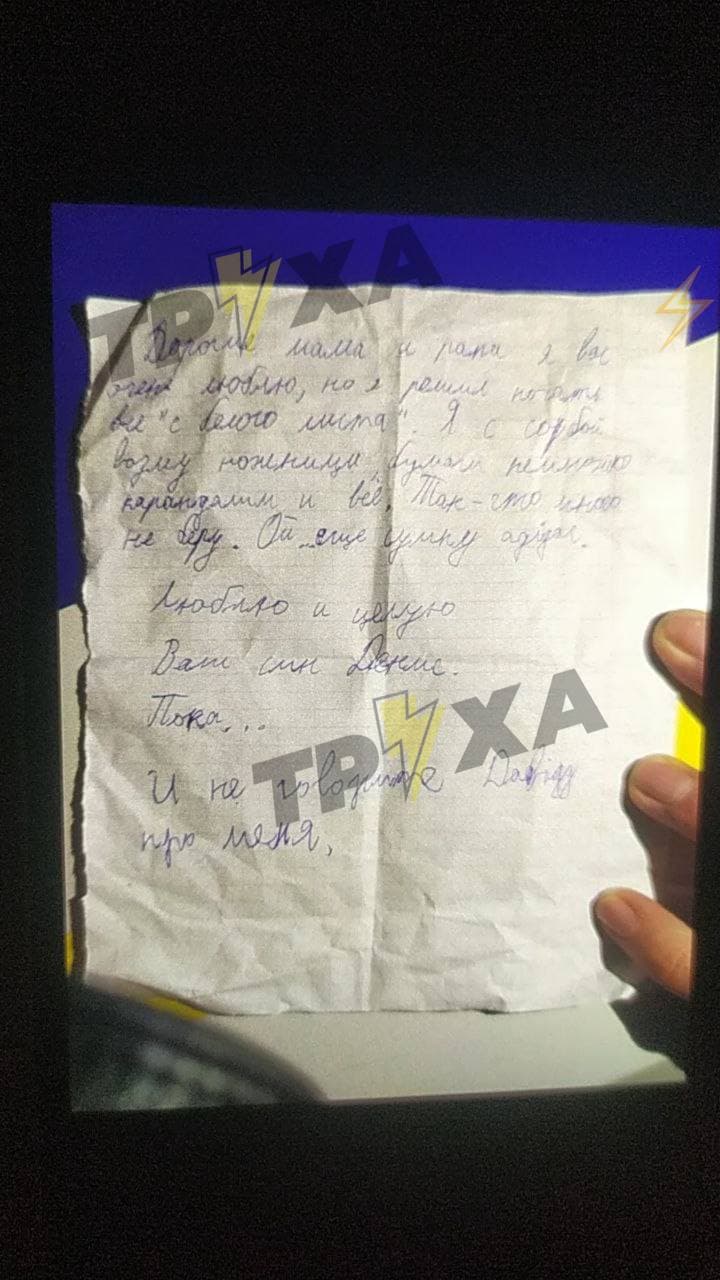 ТРУХА
Дорогие мама и папа я вас
очень люблю, но я решил начать
всё "с белого листа". Я с собой
возму ноженици, бумаги немножко
карандашим и всё. Так-что много
не беру. Ой...еще сумку adidas.
Люблю и целую
Ваш син Денис.
Пока...
ТРУХА
И не говорите Давиду
про меня,